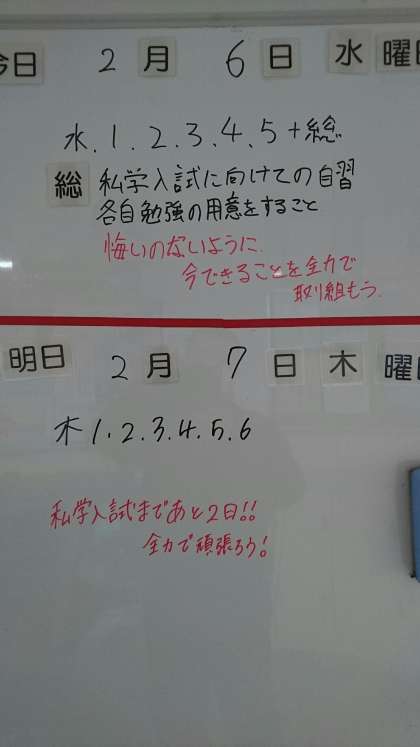 今日 2月 6日 水曜日
水.1.2.3.4.5+総
総 私学入試に向けての自習
各自勉強の用意をすること
悔いのないように.
今できることを全力で
取り組もう.
明日 2月 7日 木曜日
木1.2.3.4.5.6
私学入試まであと2日!!
全力で頑張ろう!